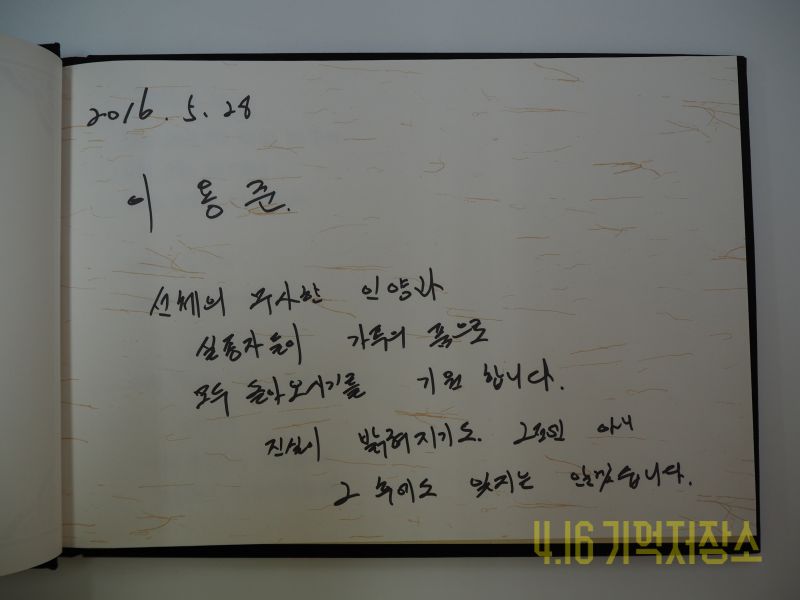 2016. 5. 28
이 용 준.
선체의 무사한 인양과
실종자들이 가족의 품으로
모두 돌아오시기를 기원 합니다.
진실이 밝혀지기도. 아니
그 후에도 잊지는 않겠습니다.
4.16 기억저장소